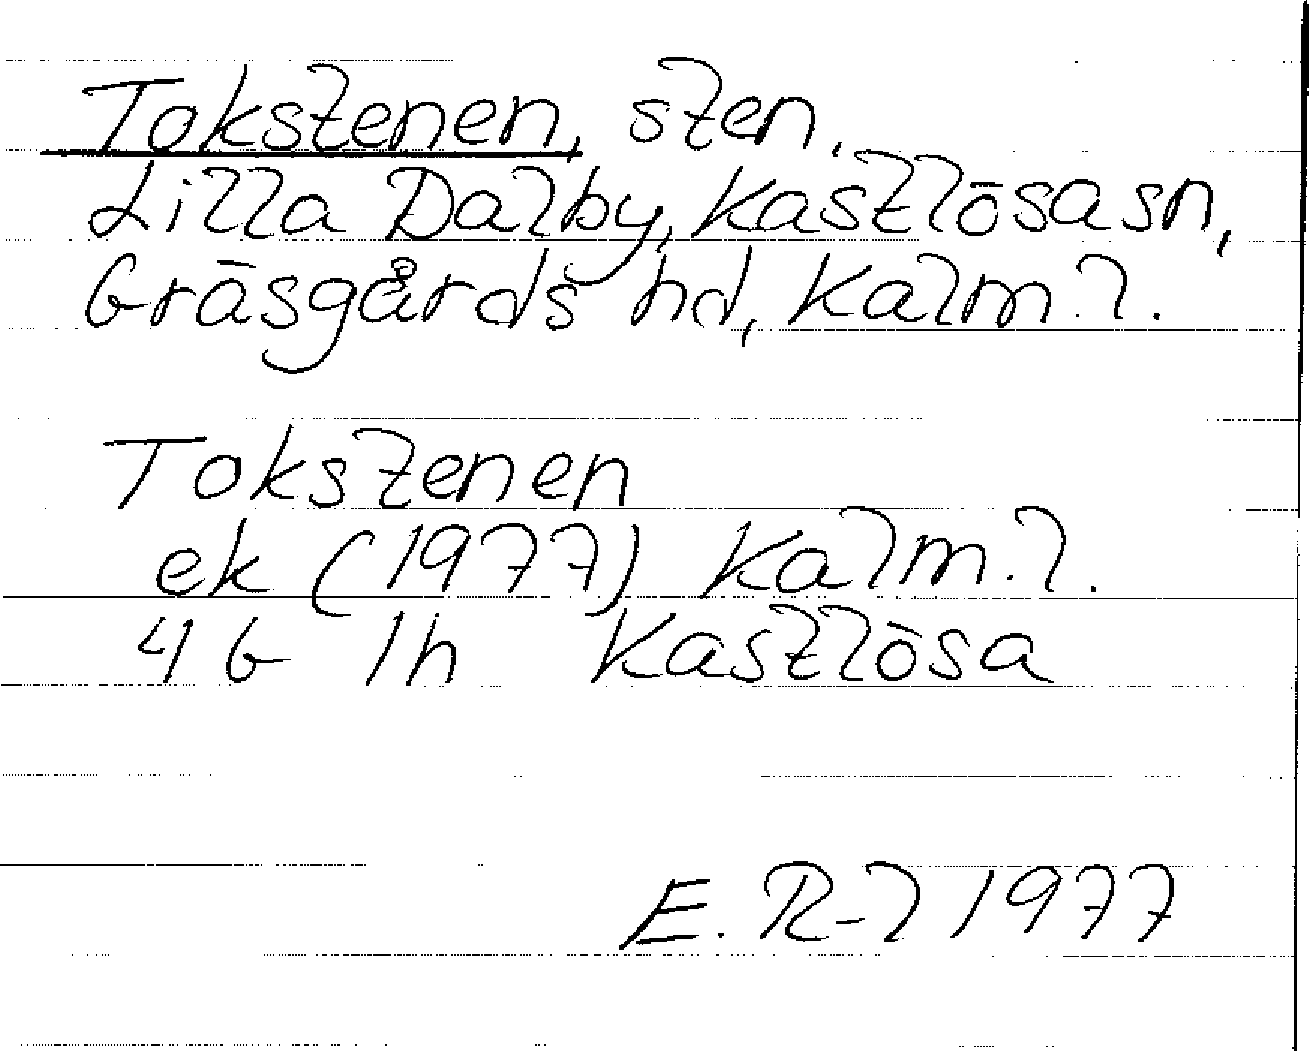 Tokstenen, sten.
Lilla Dalby, Kastlösa sn,
Gräsgårds hd, Kalm. l.
Tokstenen
ek (1977) Kalm. l.
4 G 1h Kastlösa
E. R-l 1977